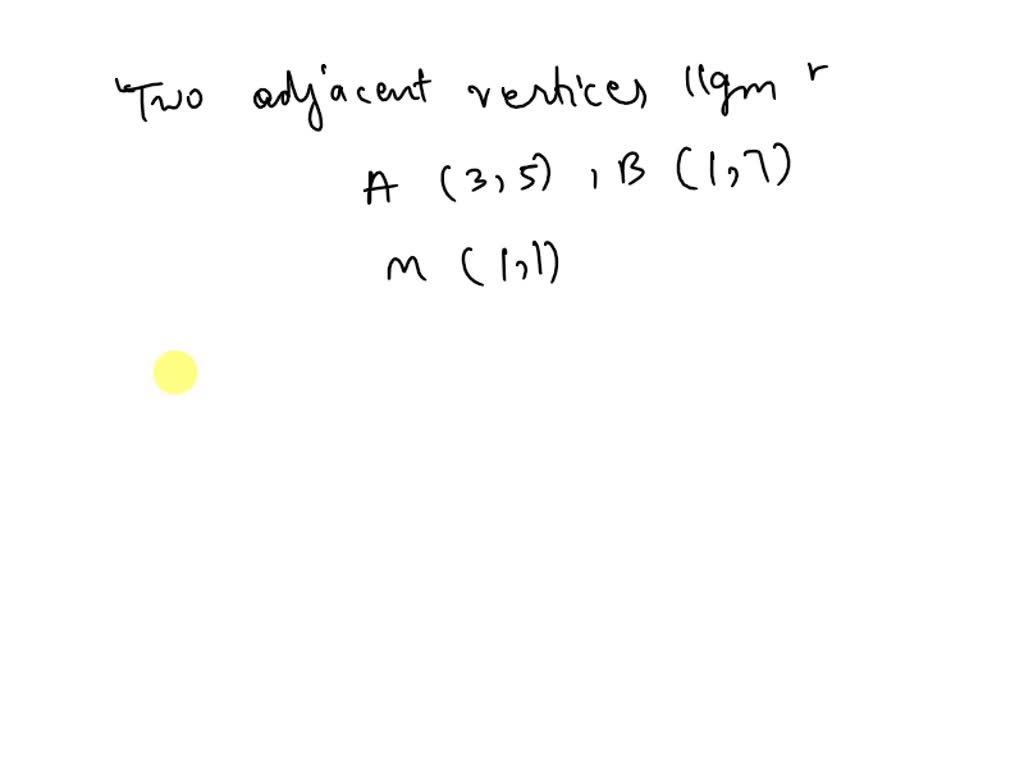 Two adjacent vertices ||gm r
A (3,5) , B (1,7)
M (1,1)